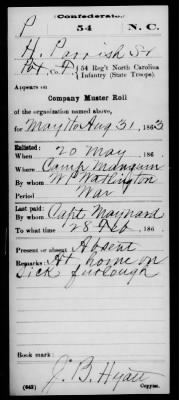 Confederate
P 54 N. C.
H. Perrish Sr
Pvt, Co. F, 54 Reg't North Carolina
Infantry (State Troops).
Appears on
Company Muster Roll
of the organization named above,
for May 1 to Aug 31, 1863
Enlisted:
When 20 May, 186 .
Where Camp Mangum
By whom W. P. Watlington
Period War
Last paid:
By whom Capt Maynard
To what time 28 Feb, 186 .
Present or absent Absent
Remarks: At home on
Sick furlough
Book mark:
J. B. Hyatt
(642) Copyist.